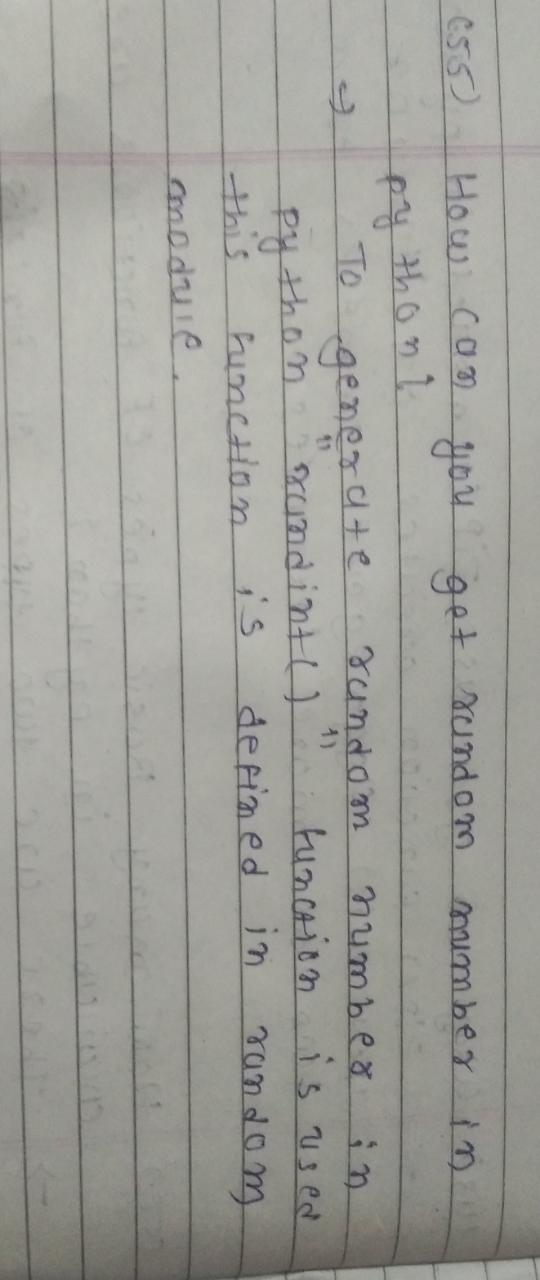 (55) How can you get random number in
python?
→ To generate random number in
python "randint()" function is used
this function is defined in random
module.